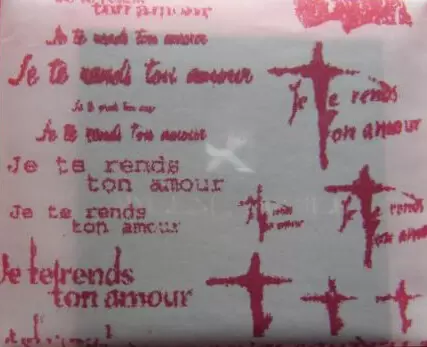 ton amour
Je te rends ton amour
Je te rends ton amour
Je te rends
ton amour
Je te rends ton amour
Je te rends ton amour
Je te rends
ton amour
Je te rends
ton amour
Je te rends
ton amour
Je te rends
ton amour
Je te rends
ton amour